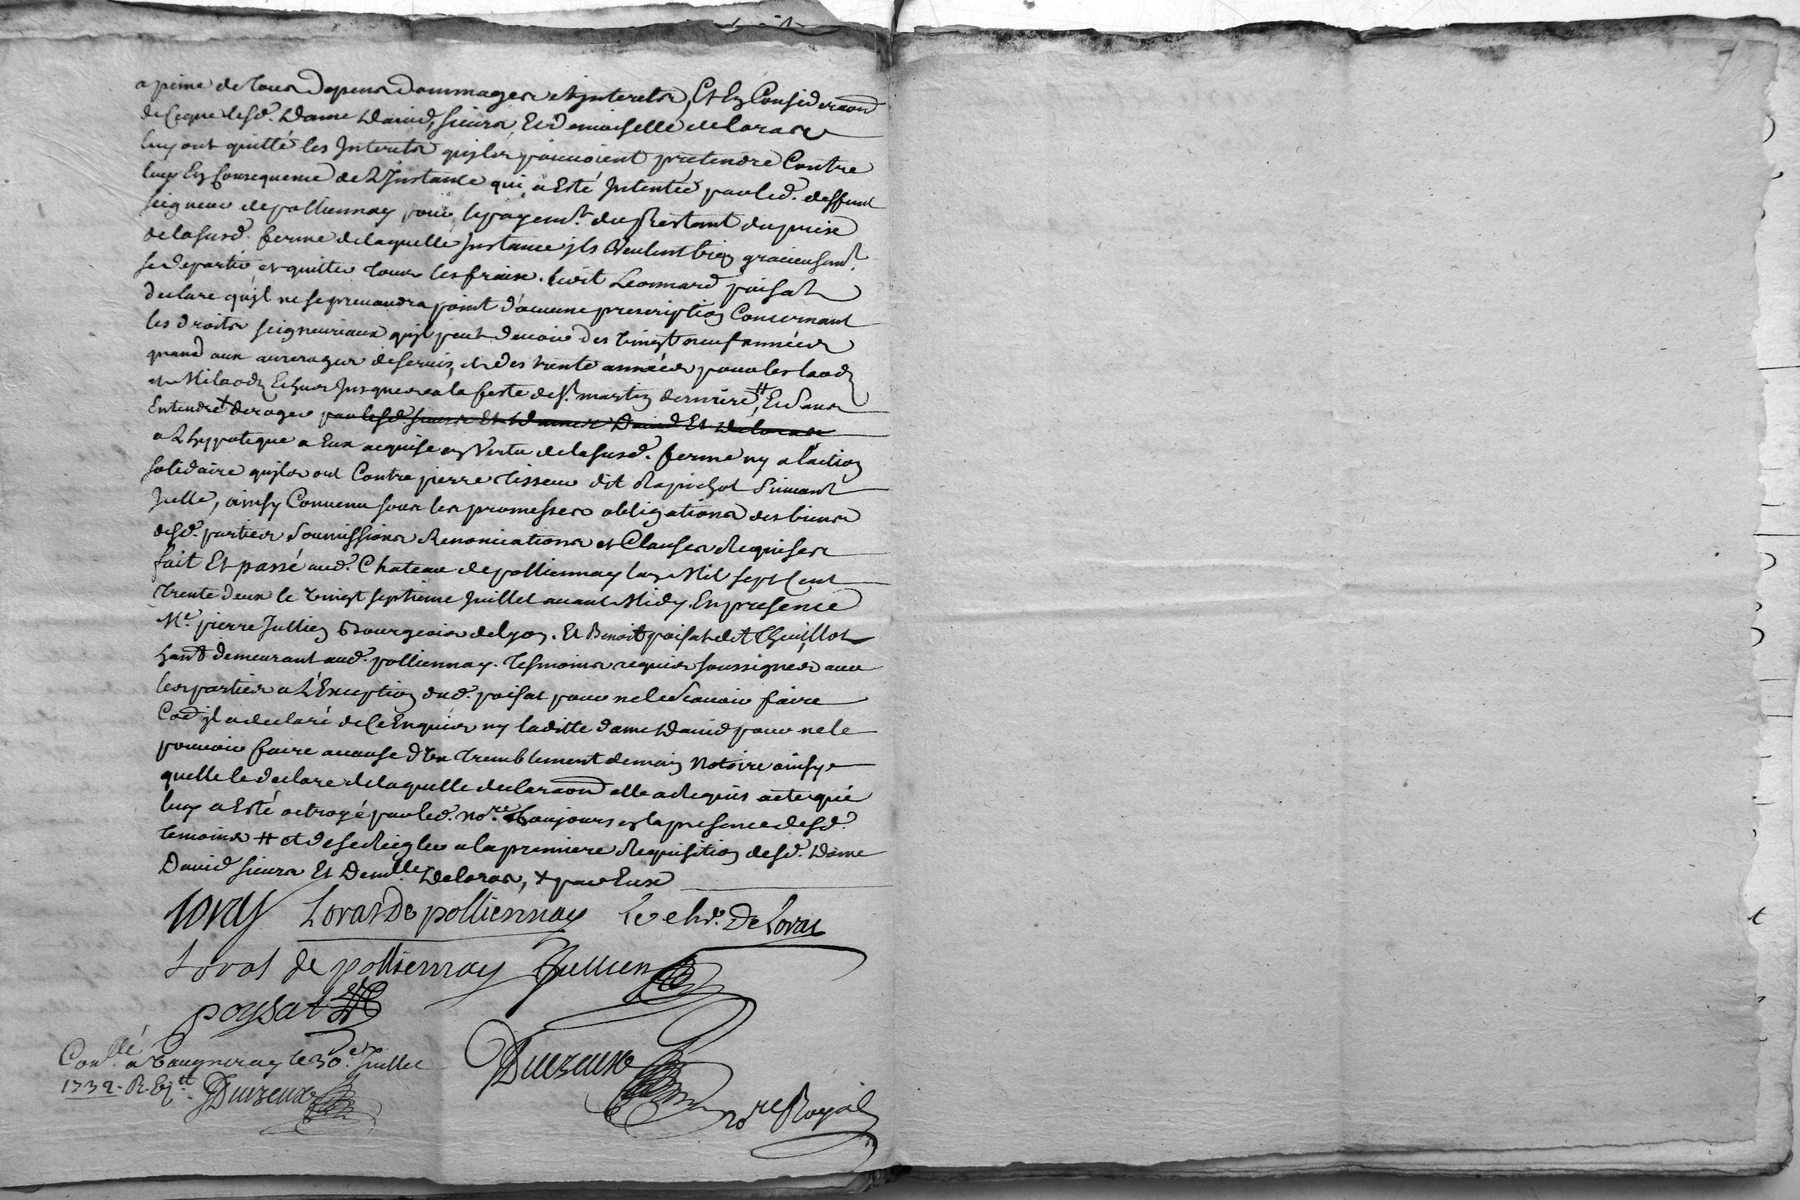 a peine de tous depens dommages et interets, Et En Consideraon
de ceque lesd. Dame David, sieurs Et demoiselle deloras
luy ont quitté les Interets quils pouvoient pretendre Contre
luy En Consequence de L'Instance qui a Esté Intentée par led. deffunt
seigneur de pollionnay pour le payemt. du Restant du prix
de lasusd. ferme de laquelle Instance ils veulent bien gracieusemt.
se departir et quitter tous les fraix. ledit Leonnard poisat
declare qu'il ne se prevaudra point d'aucune prescription Concernant
les droits seigneuriaux qu'il peut devoir des vingt neuf années
quand aux arrerages de servis, et des trente années pour les laods
et Milaods Echus Jusques a la feste de st. martin derniere, # Et sans
Entendre + deroger par lesd. sieurs Et Dames David Et Deloras
a L'hypoteque a Eux acquise en Vertu de lasusd. ferme ny a l'action
solidaire quils ont Contre pierre Tisseur dit Rapichot suivant
Icelle, ainsy Convenu sous les promesses obligations des biens
desd. parties soumissions Renonciations et Clauses Requises
fait Et passé aud. Chateau de pollionnay lan Mil sept Cent
trente deux le vingt septieme Juillet avant Midy En presence
Me. pierre Jullien Bourgeois de Lyon. Et Benoit poisat dit Thuillot
demeurant aud. pollionnay. Tesmoins requis soussignes avec
les parties a L'Exception dud. poisat pour ne le scavoir faire
il a declaré de ce Enquis ny laditte dame David pour ne le
pouvoir faire a cause d'Un tremblement de main Notoire ainsy
quelle le declare de laquelle declaraon elle a Requis acte qui
luy a Esté octroyé par led. nore. toujours en la presence desd.
temoins # et de se Regler a la premiere Requisition desd. Dame
David sieurs Et Demlle. Deloras, + par Eux
loras Loras De pollionnay Le chr. De Loras
Loras de pollionnay Jullien
poysat
Conllé. a Vaugneray le 30e. Juillet
1732. R.
Duvzeux
Duvzeux
nore Royal